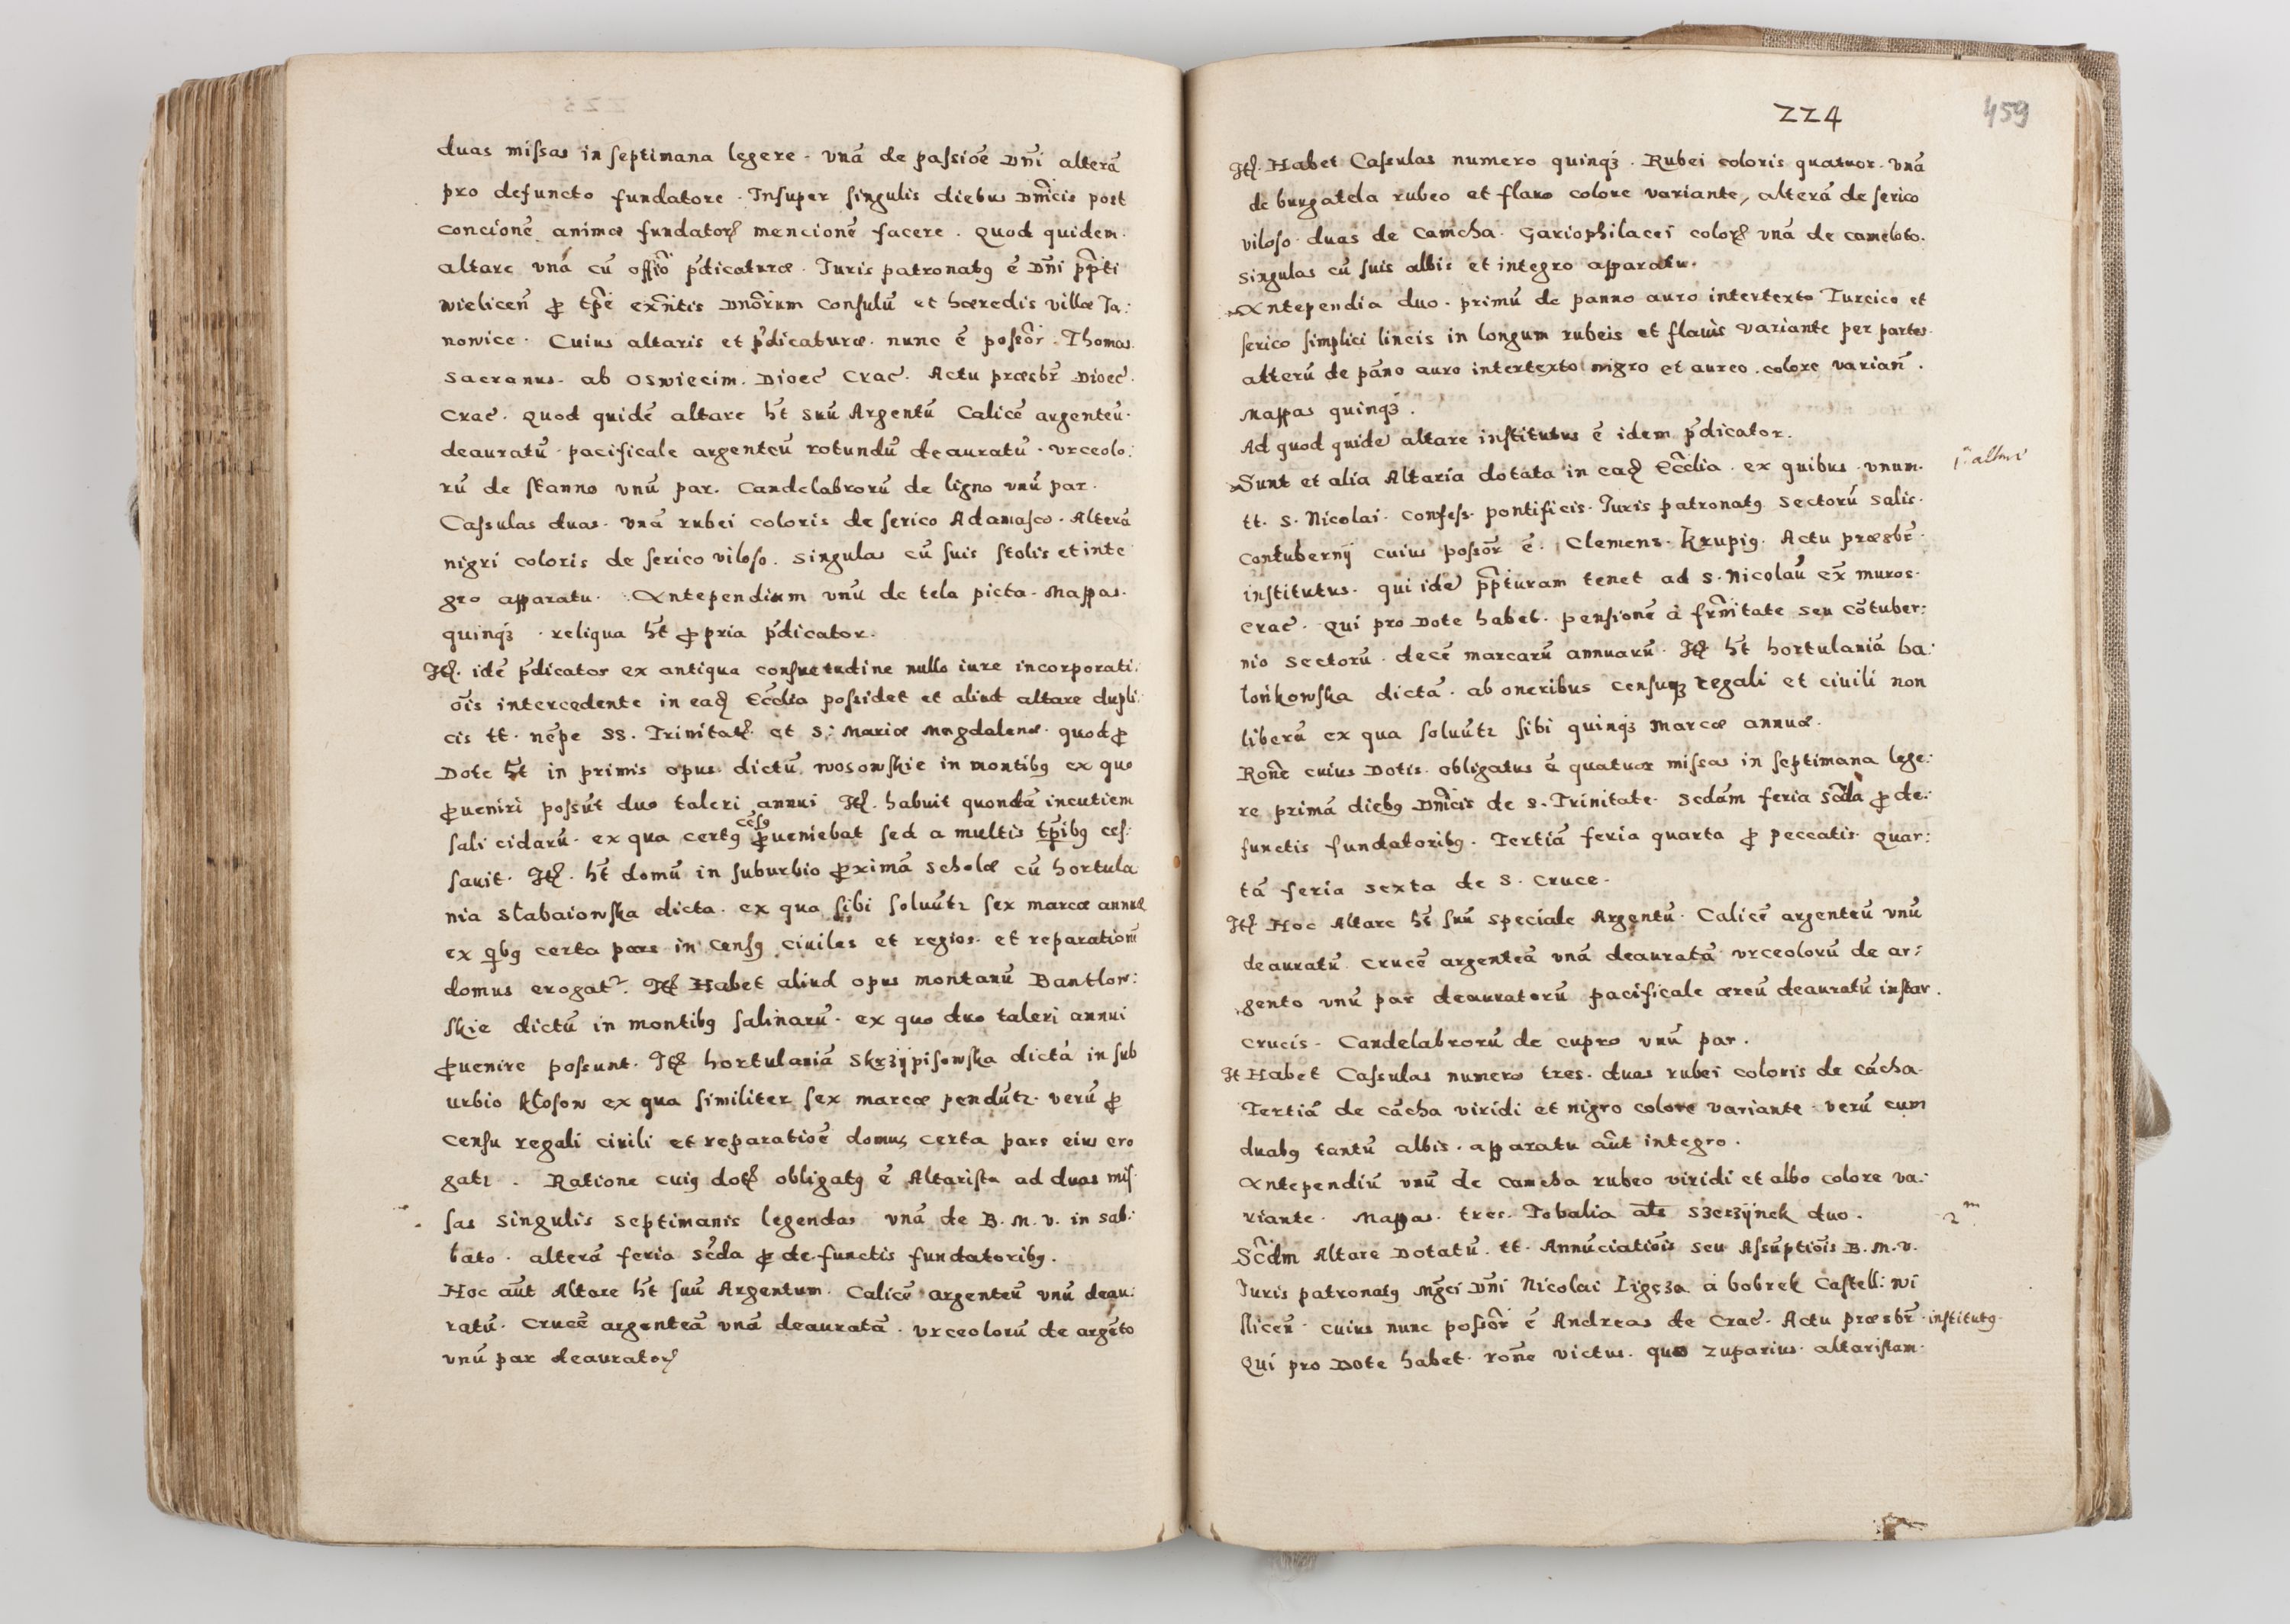 duas missas in septimana legere. unā de passiōe Dn̄i alterā
pro defuncto fundatore. Insuper singulis diebus Dn̄icis post
concionē animæ fundatorꝭ mencionē facere. Quod quidem
altare unā cū offi̅o p̄dicaturæ. Juris patronatꝯ ē Dn̄i pp̄ti
wielicen̄ ꝓ tp̄e exn̄tis Dnōrum Consulū et hæredis villæ Ja:
nowice. Cuius altaris et p̄dicaturæ. nunc ē possōr. Thomas
Sacranus. ab Oswiecim. Dioec̄ Crac̄. Actu præsbr̄ Dioec̄.
Crac̄. Quod quidē altare ht̄ suū Argentū Calicē argenteū.
deauratū. pacificale argenteū rotundū deauratū. urceolo:
rū de stanno unū par. Candelabrorū de ligno unū par.
Cassulas duas. unā rubei coloris de serico Adamasco. Alterā
nigri coloris de serico viloso. Singulas cū suis stolis et inte
gro apparatu. Antependium unū de tela picta. Mappas.
quinqꝫ. reliqua ht̄ ꝓpria p̄dicator.
Itꝭ. idē p̄dicator ex antiqua consuetudine nullo iure incorporati:
ōis intercedente in eadꝭ Eccl̄ia possidet et aliud altare dupli:
cis tt. nēpe SS. Trinitatꝭ et S. Mariæ Magdalenæ. quod ꝓ
Dote ht̄ in primis opus dictū wosowskie in montibꝯ ex quo
ꝓueniri possūt duo taleri annui. Itꝭ. habuit quondā incutiem
cēsꝯ
sali cidarū. ex qua certꝯ ꝓueniebat sed a multis tp̄ibꝯ ces:
sauit. Itꝭ. ht̄ domū in suburbio ꝓximā Scholæ cū hortula
nia Stabaiowska dicta. ex qua sibi soluūtr sex marcæ annuæ
ex qi̅bꝯ certa pars in Censꝯ ciuiles et regios. et reparationē
domus erogatr. Itꝭ Habet aliud opus montanū Bantlow:
skie dictū in montibꝯ salinarū. ex quo duo taleri annui
ꝓuenire possunt. Itꝭ hortulaniā Skrzÿpisowska dictā in sub
urbio Kłosow ex qua similiter sex marcæ pendūtr. verū ꝓ
Censu regali ciuili et reparatiōe domus certa pars eius ero
gatr. Ratione cuiꝯ dotꝭ obligatꝯ ē Altarista ad duas mis
sas singulis septimanis legendas unā de B. M. V. in sab:
bato. alterā feria Sc̄da ꝓ defunctis fundatoribꝯ.
Hoc aūt Altare ht̄ suū Argentum. Calicē argenteū unū deau:
ratū. Crucē argenteā unā deauratā. Urceolorū de argēto
unū par deauratorꝭ
224
459
Itꝭ. Habet Cassulas numero quinqꝫ. Rubei coloris quatuor. unā
de burgatela rubeo et flauo colore variante, alterā de serico
viloso. duas de camcha. Gariophilacei colorꝭ unā de cameloto.
Singulas cū suis albis et integro apparatu.
Antependia duo. primū de panno auro intertexto Turcico et
serico simplici lineis in longum rubeis et flauis variante per partes.
alterū de pāno auro intertexto nigro et aureo. colore varian̄.
Mappas quinqꝫ.
Ad quod quidē altare institutus ē idem p̄dicator.
Sunt et alia Altaria dotata in eadꝭ Eccl̄ia. ex quibus unum.
1. altare
tt. S. Nicolai. Confess. pontificis. Juris patronatꝯ Sectorū Salis.
Contubernÿ cuius possōr ē. Clemens. Krupiꝯ. Actu præsbr̄.
institutus. qui idē pp̄turam tenet ad S. Nicolaū ex̄ muros.
Crac̄. Qui pro Dote habet. pensionē à frn̄itate seu cōtuber:
nio Sectorū. decē marcarū annuarū. Itꝭ ht̄ hortulaniā ba:
lońkowska dictā. ab oneribus censuqꝫ regali et ciuili non
liberū ex qua soluūtr sibi quinqꝫ marcæ annuæ.
Ron̄e cuius Dotis. obligatus ē quatuor missas in septimana lege:
re primā diebꝯ Dn̄icis de S. Trinitate. Sc̄dam feria Sc̄da ꝓ de:
functis fundatoribꝯ. Tertiā feria quarta ꝓ peccatis. Quar:
tā feria sexta de S. Cruce.
Itꝭ Hoc Altare ht̄ suū speciale Argentū. Calicē argenteū unū
deauratū. Crucē argenteā unā deauratā. urceolorū de ar:
gento unū par deauratorū pacificale æreū deauratū instar.
crucis. Candelabrorū de cupro unū par.
It Habet Cassulas numero tres. duas rubei coloris de cācha.
Tertiā de cācha viridi et nigro colore variante. verū cum
duabꝯ tantū albis. apparatu aūt integro.
Antependiū unū de camcha rubeo viridi et albo colore va:
riante. Mappas. tres. Tobalia als̄ Szczÿnek duo.
2m.
Sc̄dm Altare Dotatū. tt. Annūciatiōis seu Assūptiōis B. M. V.
Juris patronatꝯ Mg̅ci Dn̄i Nicolai Ligęza à bobrek Castell: wi
slicen̄. cuius nunc possōr ē Andreas de Crac̄. Actu præsbr̄. institutꝯ.
Qui pro Dote habet. ron̄e victus. quo Zuparius. altaristam.